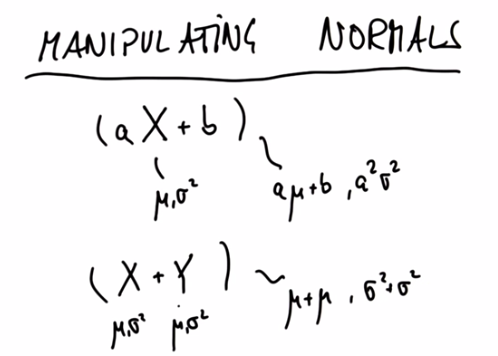 MANIPULATING NORMALS
(aX+b)
μ,σ² aμ+b, a²σ²
(X+Y) ~ μ+μ, σ²+σ²
μ,σ² μ,σ²